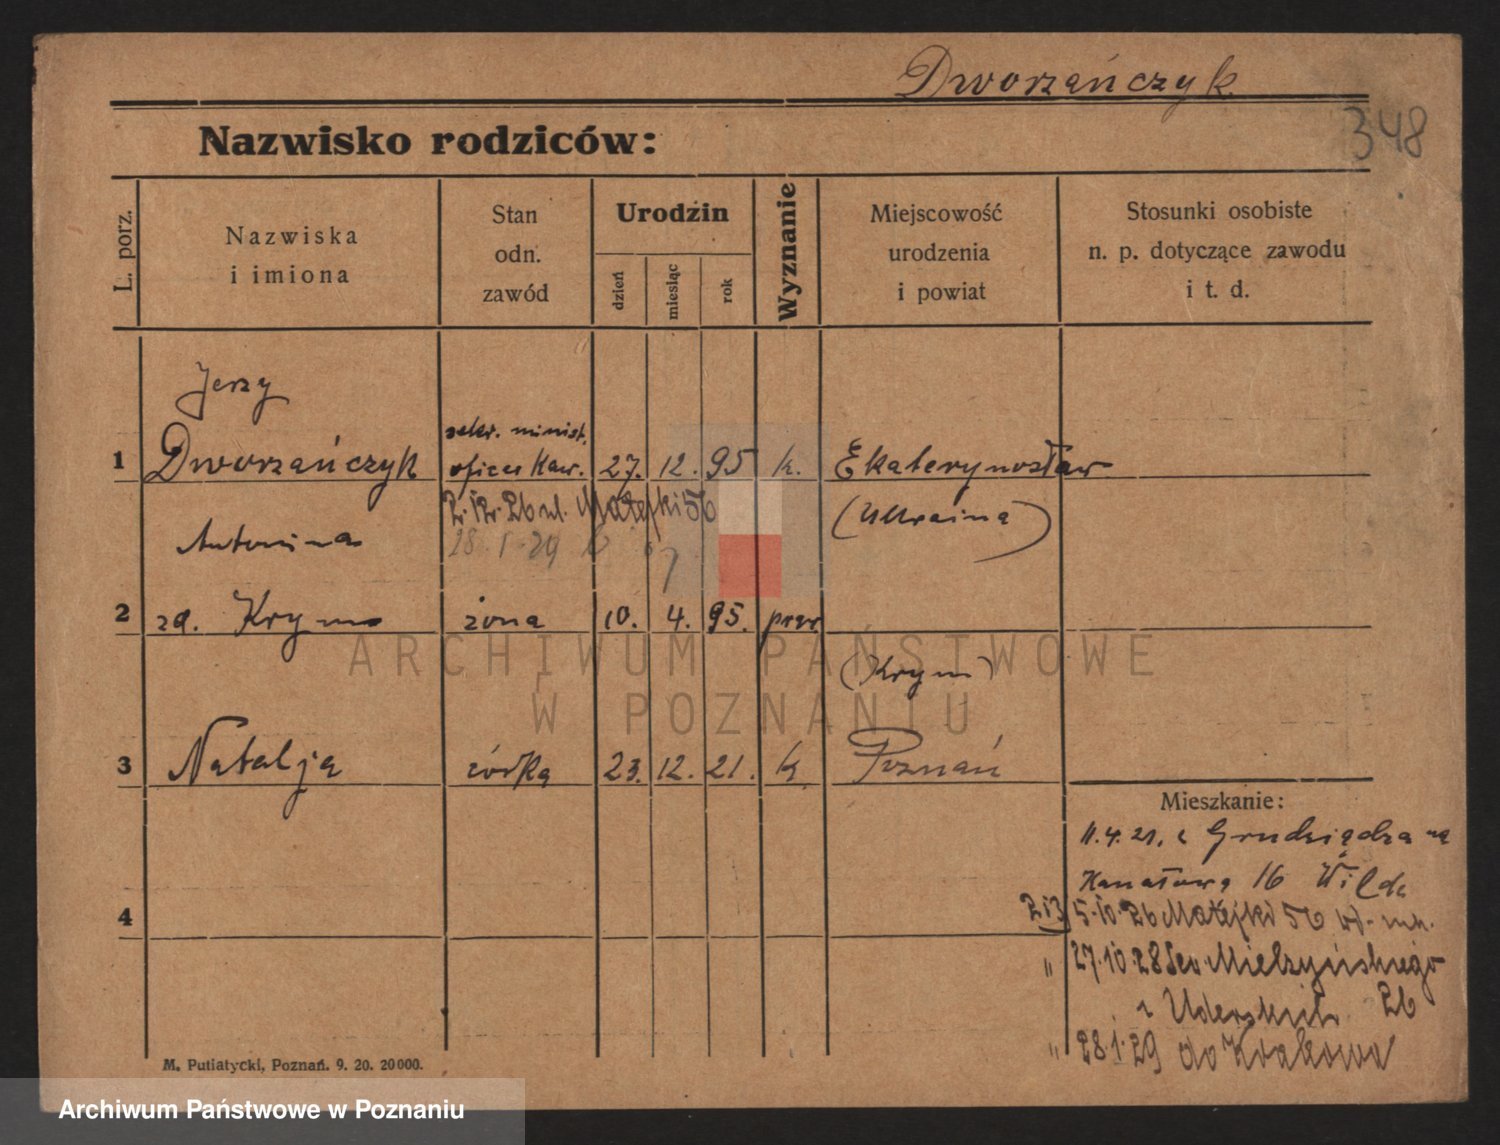 Dworzańczyk
348
Nazwisko rodziców:
L. porz.
Nazwiska
i imiona
Stan
odn.
zawód
Urodzin
dzień
miesiąc
rok
Wyznanie
Miejscowość
urodzenia
i powiat
Stosunki osobiste
n. p. dotyczące zawodu
i t. d.
Jerzy
1 Dworzańczyk sekr. minist. oficer Kaw. 27. 12. 95 k. Ekaterynosław
Matejki 56 (Ukraina)
28.1.29
Antonina
2 zd. Krym żona 10. 4. 95. praw
(Krym)
3 Natalja córka 23. 12. 21. k. Poznań
Mieszkanie:
11.4.21. z Grudziądza na
Kanałową 16 Wilde
4
2 i 3 5.10.26 Matejki 56
" 27.10.28 Sew. Mielzyńskiego
26
" 28.1.29 do Krakowa
M. Putiatycki, Poznań. 9. 20. 20000.
ARCHIWUM PAŃSTWOWE
W POZNANIU
Archiwum Państwowe w Poznaniu